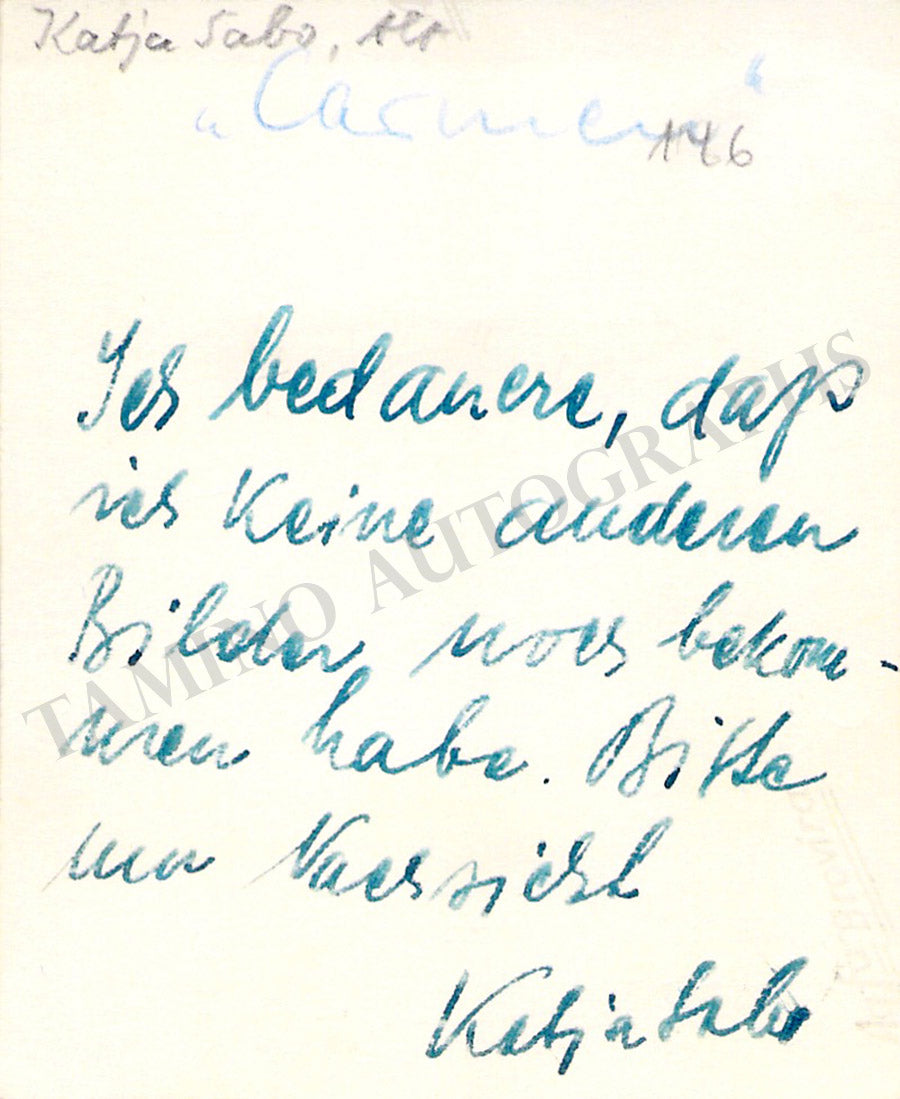 Katja Sabo, Alt
„Carmen“
146
Ich bedauere, daß
ich keine anderen
Bilder noch bekom-
men habe. Bitte
um Nachsicht
Katja Sabo
TAMINO AUTOGRAPHS